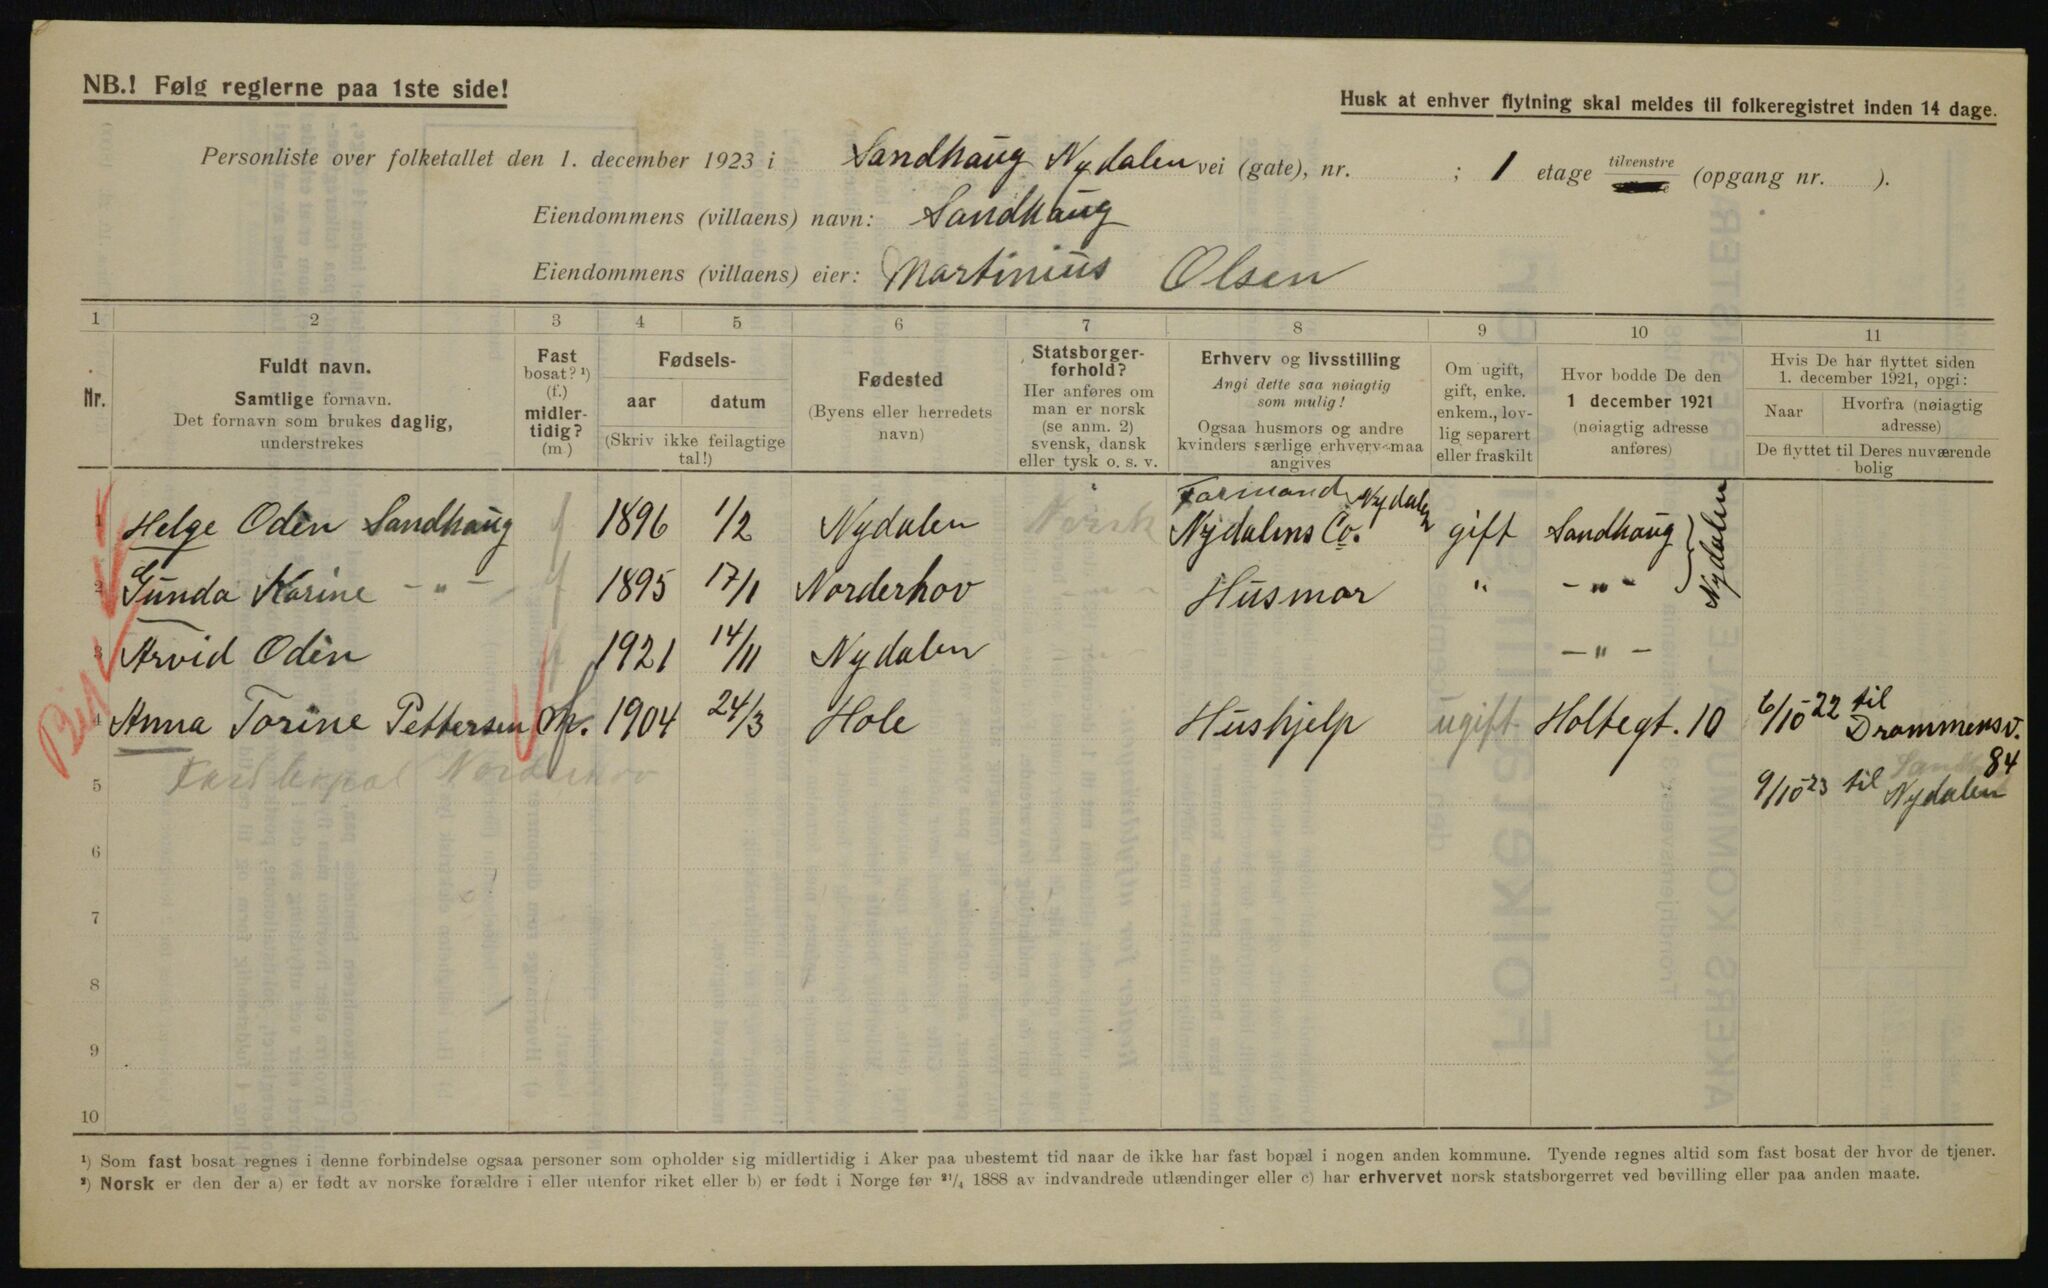 NB.! Følg reglerne paa 1ste side!
Husk at enhver flytning skal meldes til folkeregistret inden 14 dage.
Personliste over folketallet den 1. december 1923 i Sandhaug Nydalen vei (gate), nr. ; 1 etage tilvenstre (opgang nr. ).
Eiendommens (villaens) navn: Sandhaug
Eiendommens (villaens) eier: Martinius Olsen
1 2 3 4 5 6 7 8 9 10 11
Nr.
Fuldt navn.
Samtlige fornavn.
Det fornavn som brukes daglig,
understrekes
Fast
bosat? ¹)
(f.)
midler-
tidig?
(m.)
Fødsels-
aar datum
(Skriv ikke feilagtige
tal!)
Fødested
(Byens eller herredets
navn)
Statsborger-
forhold?
Her anføres om
man er norsk
(se anm. 2)
svensk, dansk
eller tysk o. s. v.
Erhverv og livsstilling
Angi dette saa nøiagtig
som mulig!
Ogsaa husmors og andre
kvinders særlige erhverv maa
angives
Om ugift,
gift, enke.
enkem., lov-
lig separert
eller fraskilt
Hvor bodde De den
1 december 1921
(nøiagtig adresse
anføres)
Hvis De har flyttet siden
1. december 1921, opgi:
Naar Hvorfra (nøiagtig
adresse)
De flyttet til Deres nuværende
bolig
1 Helge Oden Sandhaug f 1896 1/2 Nydalen Norsk Formand Nydalen
Nydalens Co. gift Sandhaug Nydalen
2 Gunda Karine - " - f 1895 17/1 Norderhov Husmor " - " -
3 Arvid Odin f 1921 14/11 Nydalen - " -
Big
4 Anna Torine Pettersen m. 1904 24/3 Hole Hushjelp ugift Holtegt. 10 6/10 22 til
Drammensv.
84
5 Fast bopæl Norderhov 9/10 23 til Nydalen
6
7
8
9
10
¹) Som fast bosat regnes i denne forbindelse ogsaa personer som opholder sig midlertidig i Aker paa ubestemt tid naar de ikke har fast bopæl i nogen anden kommune. Tyende regnes altid som fast bosat der hvor de tjener.
²) Norsk er den der a) er født av norske forældre i eller utenfor riket eller b) er født i Norge før ²¹/₄ 1888 av indvandrede utlændinger eller c) har erhvervet norsk statsborgerret ved bevilling eller paa anden maate.